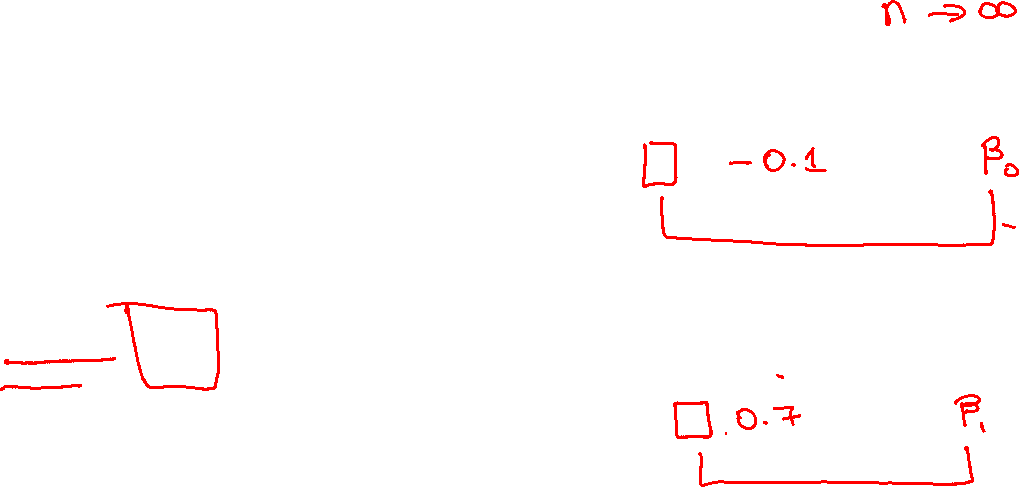 n → ∞
□ -0.1 β₀
□ 0.7 β₁